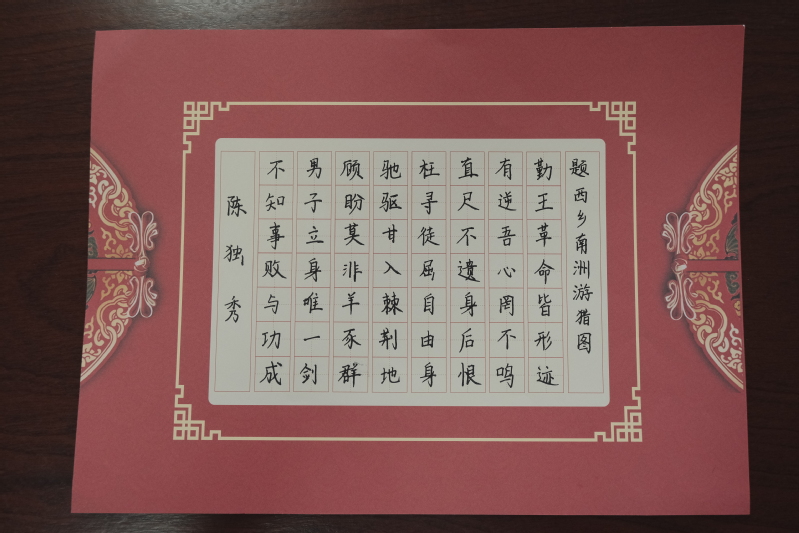 题西乡南洲游猎图
勤王革命皆形迹
有逆吾心罔不鸣
直尺不遗身后恨
枉寻徒屈自由身
驰驱甘入棘荆地
顾盼莫非羊豕群
男子立身唯一剑
不知事败与功成
陈独秀